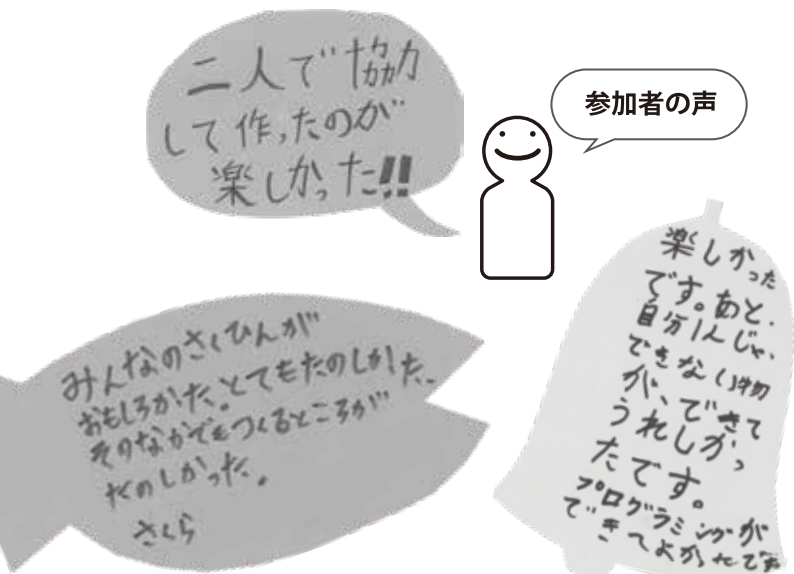 二人で協力
して作ったのが
楽しかった!!
参加者の声
みんなのさくひんが
おもしろかった。とてもたのしかった。
そのなかでもつくるところが
たのしかった。
さくら
楽しかった
です。あと、
自分1人じゃ、
できない物
が、できて
うれしかっ
たです。
プログラミングが
できてよかったです